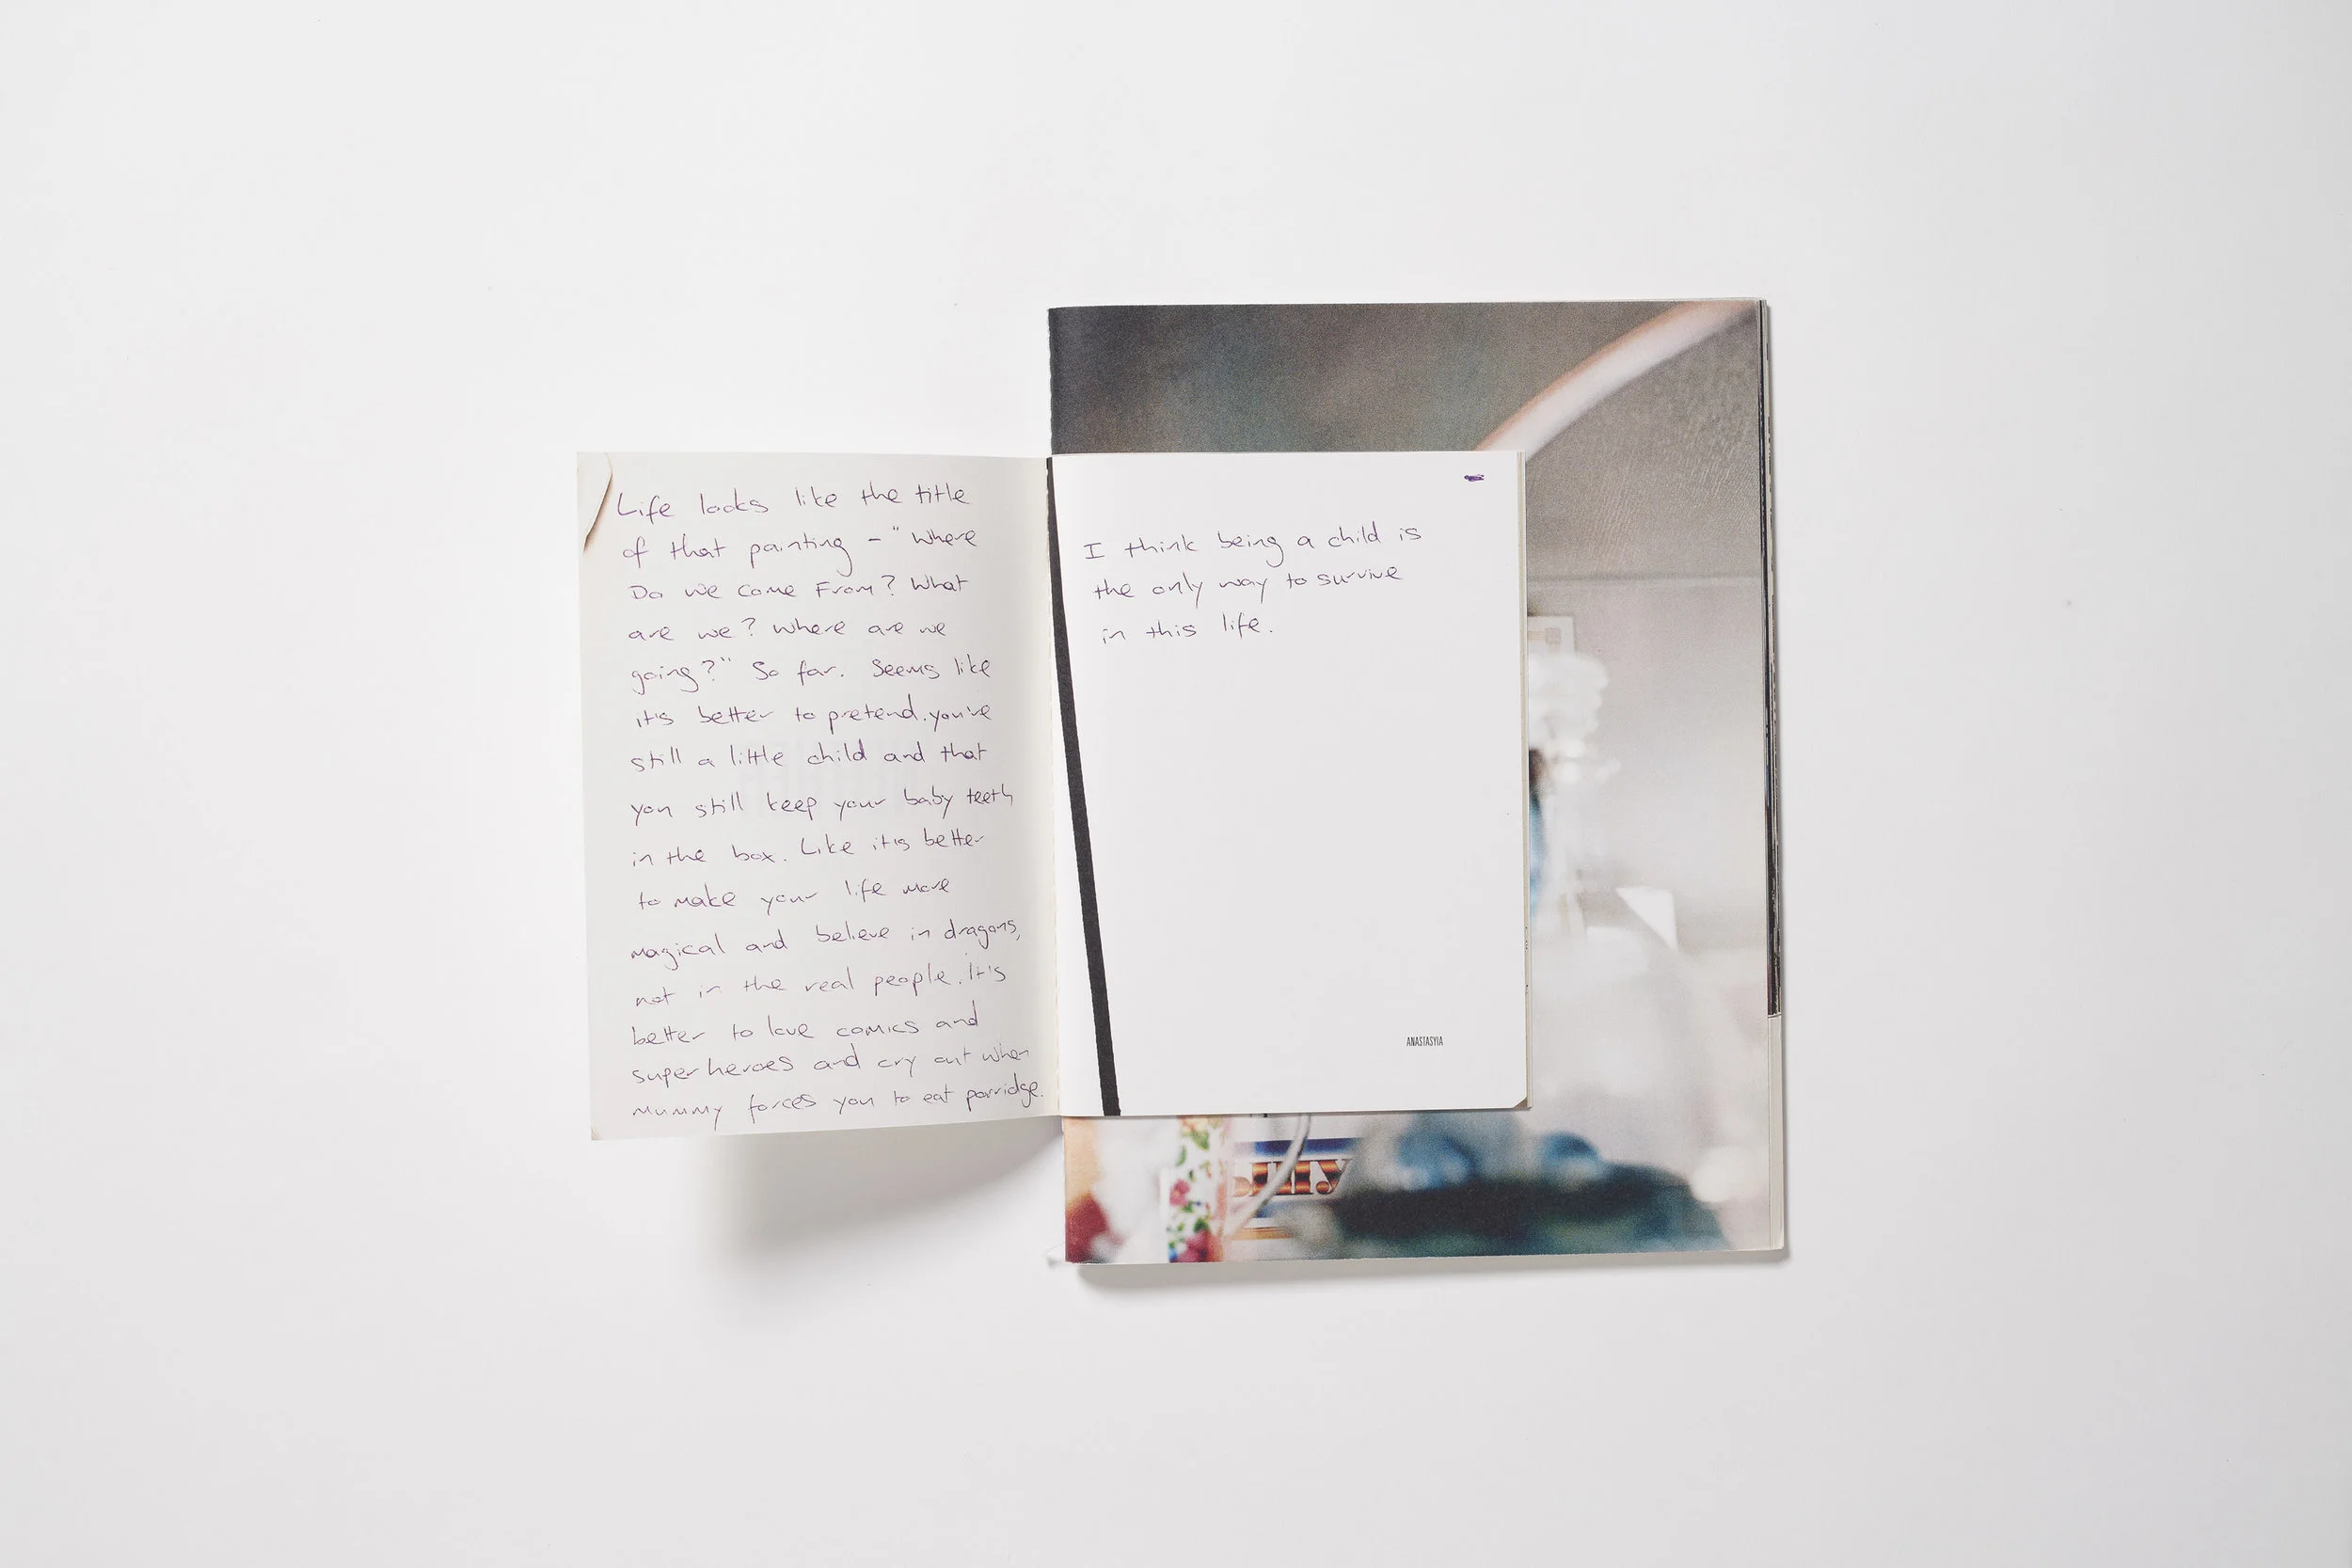 Life looks like the title
of that painting - "Where
Do we Come From? What
are we? Where are we
going?" So far. Seems like
it's better to pretend you've
still a little child and that
you still keep your baby teeth
in the box. Like it's better
to make your life more
magical and believe in dragons,
not in the real people. It's
better to love comics and
superheroes and cry out when
mummy forces you to eat porridge.
I think being a child is
the only way to survive
in this life.
ANASTASYIA